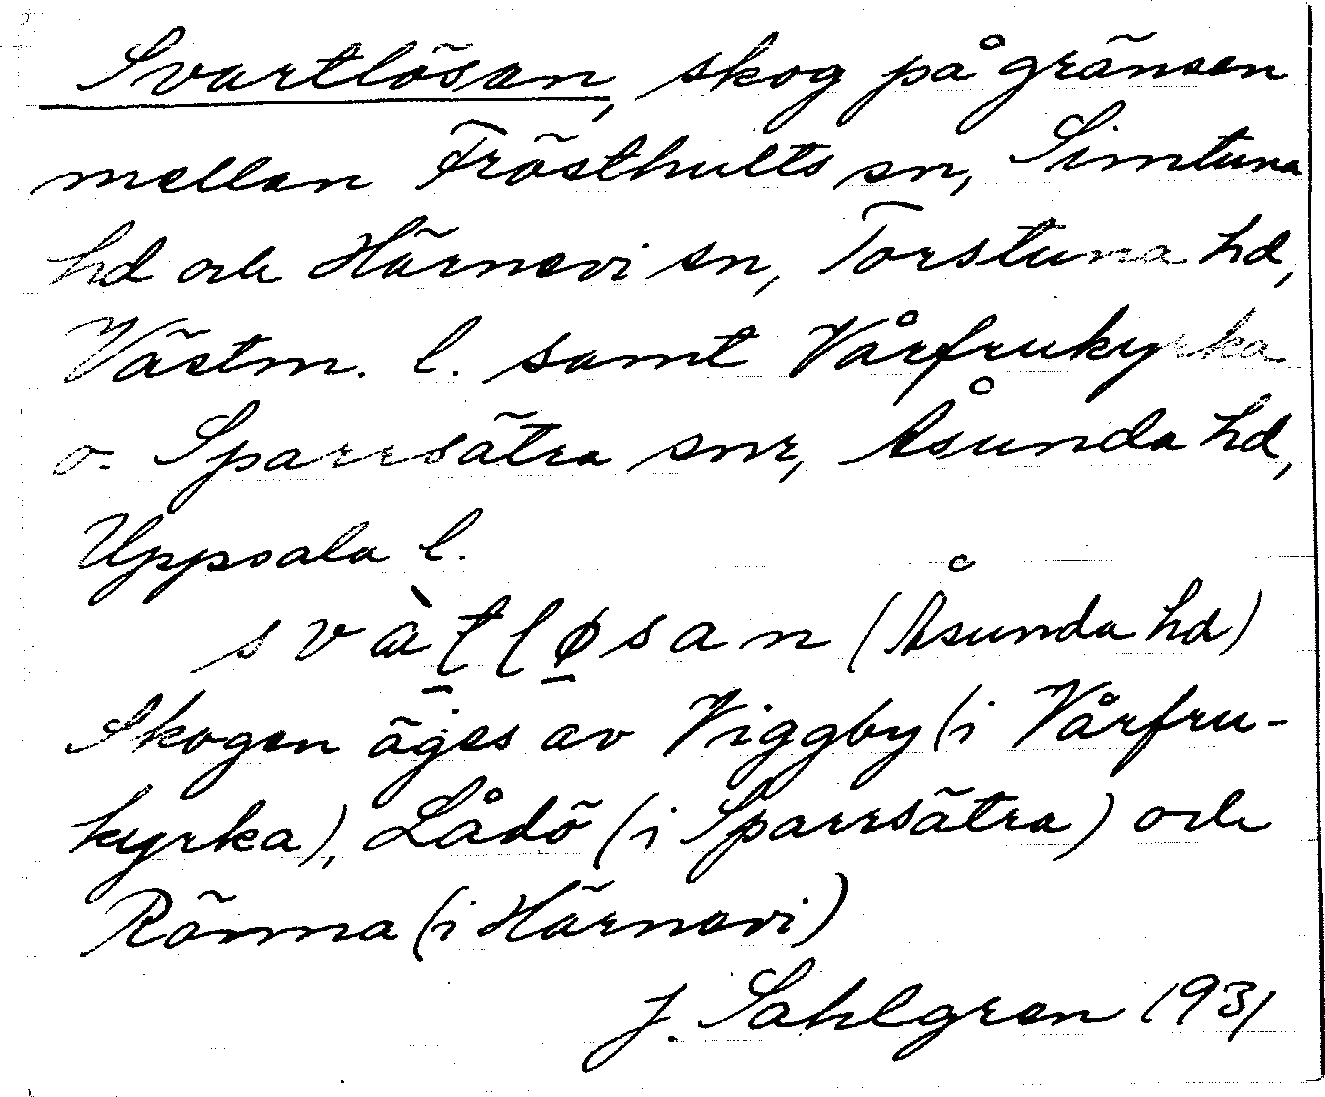 Svartlösen, skog på gränsen
mellan Frösthults sn, Simtuna
hd och Härnevi sn, Torstuna hd,
Västm. l. samt Vårfrukyrka
o. Sparrsätra snr, Åsunda hd,
Uppsala l.
svàt̠lø̠san (Åsunda hd)
Skogen äges av Viggby (i Vårfru-
kyrka), Lådö (i Sparrsätra) och
Rönna (i Härnevi)
J. Sahlgren 1931